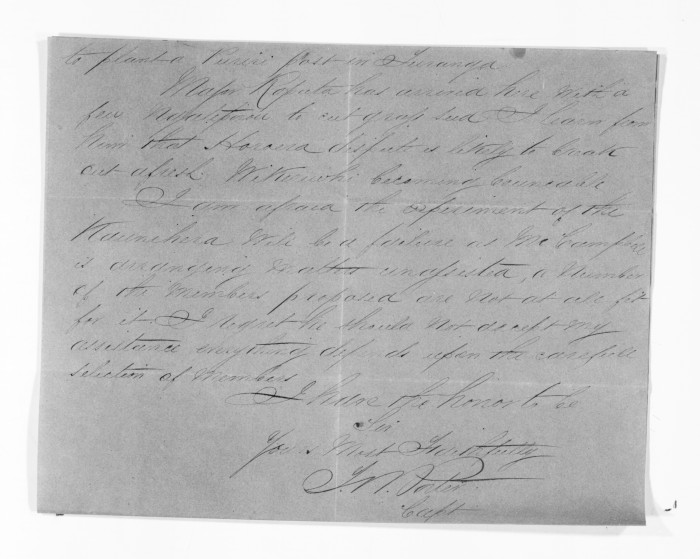 to plant a Puriri Post in Turanga
Major Ropata has arrived here with a
few Ngatiporou to cut grass seed I learn from
him that Horoera dispute is likely to break
out afresh becoming
I am afraid the experiment of the
Raunihera will be a failure as Mr Campbell
is arranging matters unassisted, a number
of the members proposed are not at all fit
for it. I regret he should not accept my
assistance everything depends upon the careful
selection of members
I have the honor to be
Sir
Your Most Faithfully
T. W. Porter
Capt